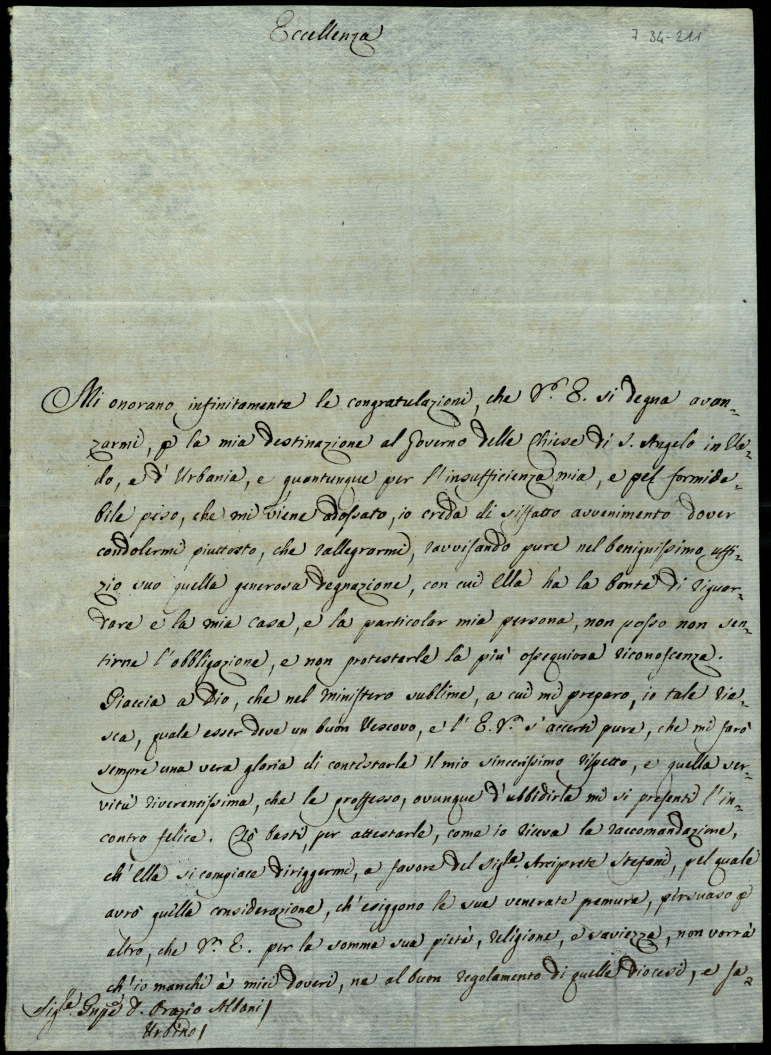 Eccellenza
7-34-211
Mi onorano infinitamente le congratulazioni, che V.ª E. si degna avan-
zarmi, p la mia destinazione al Governo delle Chiese di S. Angelo in Va-
do, e d'Urbania, e quantunque per l'insufficienza mia, e pel formida-
bile peso, che mi viene adossato, io creda di siffatto avvenimento dover
condolermi piuttosto, che rallegrarmi, ravvisando pure nel benignissimo uffi-
zio suo quella generosa degnazione, con cui Ella ha la bontà di riguar-
dare e la mia casa, e la particolar mia persona, non posso non sen-
tirne l'obbligazione, e non protestarle la più ossequiosa riconoscenza.
Piaccia a Dio, che nel Ministero sublime, a cui mi preparo, io tale rie-
sca, quale esser deve un buon Vescovo, e l'E. V.ª s'accerti pure, che mi farò
sempre una vera gloria di contestarle il mio sincerissimo rispetto, e quella ser-
vitù riverentissima, che le proffesso, ovunque d'ubbidirla mi si presenti l'in-
contro felice. Ciò basti, per attestarle, come io riceva la raccomandazione,
ch'Ella si compiace diriggermi, a favore del Sig.re Arciprete Stefani, pel quale
avrò quella considerazione, ch'esiggono le sue venerate premure, persuaso p
altro, che V.ª E. per la somma sua pietà, religione, e saviezza, non vorrà
ch'io manchi à miei doveri, ne al buon regolamento di quelle Diocesi, e sa-
D. Orazio Albani
Urbino